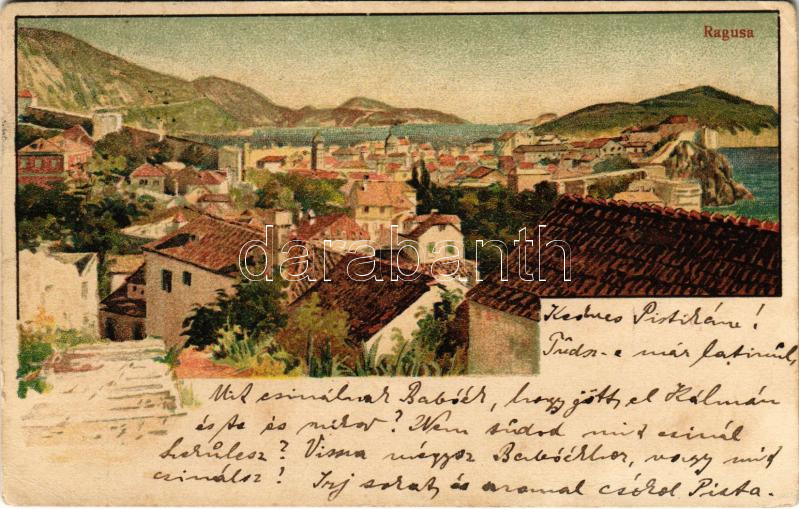 Ragusa
darabanth
Kedves Pistikáne!
Tudsz-e már latinúl,
Mit csinálnak Babóék, hogy jött el Kálmán
és te és mikor? Nem tudod mit csinál
? Vissza mégysz Babóékhoz, vagy mit
csinálsz? Irj sokat, és csókol Pista.